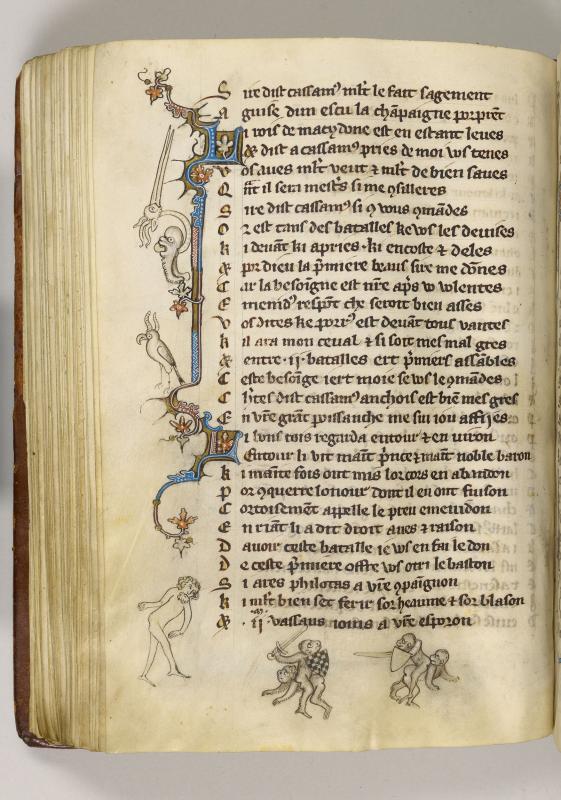 S ire dist cassam⁹ mlt le fait sagement
a guise dun escu la chãpaigne porprẽt
L i rois de macydone est en estant leues
& dist a cassam⁹ pries de moi vos tenes
v os aves mlt veut & mlt de bien saves
Q ãt il sera mest's si me ꝯsilleres
S ire dist cassam⁹ si ꝯ vous ꝯmãdes
O r est tans des batalles ke vos les devises
k i devãt ki apries · ki encoste & deles
& por dieu la p̃miere biaus sire me dõnes
C ar la besoĩgne est nr̃e ap̃s vo volentes
E menid⁹ respõt che seroit bien asses
v os dites ke porr⁹ est devãt tous vantes
k il ara mon ceval & si soit mes mal gres
& entre · ij · batalles ert p̃miers assãbles
C este besoĩge iert moie se vos le ꝯmãdes
C hites dist cassam⁹ anchois est biẽ mes gres
E n vr̃e grãt poissanche me sui iou affijes
L i bons rois regarda entour & en viron
Entour li vit maĩt p̃nce & maĩt noble baron
k i maĩte fois ont mis lor cors en abandon
P or ꝯquerre lonour dont il en ont fuison
C ortoisement appelle le preu emenidon
E n riãt li a dit droit aves & raison
D avoir ceste batalle ie vos en fai le don
d e ceste p̃miere offre vos otri le baston
S i ares philotas a vr̃e ꝯpaignon
k i mlt bien set ferir sor heaume & sor blason
& · ij · vassaus ioins a vr̃e esporon